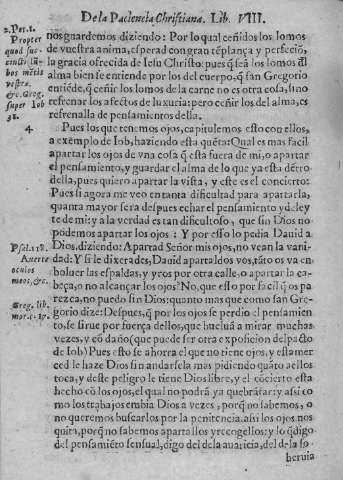 De la Paciencia Christiana. Lib. VIII.
2. Pet. 1.
Propter
quod suc-
cincti lũ-
bos mẽtis
vestræ.
&c. Greg.
super Iob
31.
nos guardemos diziendo: Por lo qual ceñidos los lomos
de vuestra anima, esperad con gran tẽplança y perfeciõ,
la gracia ofrecida de Iesu Christo: pues q̃ seã los lomos dl
alma bien se entiende por los del cuerpo, q̃ san Gregorio
entiẽde, q̃ ceñir los lomos de la carne no es otra cosa, sino
refrenar los afectos de luxuria: pero ceñir los del alma, es
refrenalla de pensamientos della.
4
Pues los que tenemos ojos, capitulemos esto con ellos,
a exemplo de Iob, haziendo esta quẽta: Qual es mas facil
apartar los ojos de vna cosa q̃ esta fuera de mi, o apartar
el pensamiento, y guardar el alma de lo que ya esta dẽtro
della, pues quiero apartar la vista, y este es el concierto:
Pues si agora me veo en tanta dificultad para apartarla,
quanta mayor sera despues echar el pensamiento y deley
te de mi: y a la verdad es tan dificultoso, que sin Dios no
podemos apartar los ojos: Y por esso lo pedia Dauid a
Psal. 118.
Auerte
oculos
meos, &c.
Dios, diziendo: Apartad Señor mis ojos, no vean la vani-
dad: Y si le dixerades, Dauid apartaldos vos, tãto os va en
boluer las espaldas, y yros por otra calle, o apartar la ca-
beça, o no alcançar los ojos? No, que esso por facil q̃ os pa
rezca, no puedo sin Dios: quanto mas que como san Gre-
Greg. lib.
mor. c. 17.
gorio dize: Despues, q̃ por los ojos se perdio el pensamien
to, se sirue por fuerça dellos, que buelua a mirar muchas
vezes, y cõ daño (que puede ser otra exposicion del pacto
de Iob) Pues esto se ahorra el que no tiene ojos, y esta mer
ced le haze Dios sin andarsela mas pidiendo quãto a ellos
toca, y deste peligro le tiene Dios libre, y el cõcierto esta
hecho cõ los ojos, el qual no podrà ya quebrãtar: y asi co
mo los trabajos embia Dios a vezes, porq̃ no sabemos, o
no queremos buscarlos por la penitencia. asi los ojos nos
quita, porq̃ no sabemos apartallos y recogellos: y lo q̃ digo
del pensamiẽto sensual, digo del dela auaricia, del de la so-
beruia